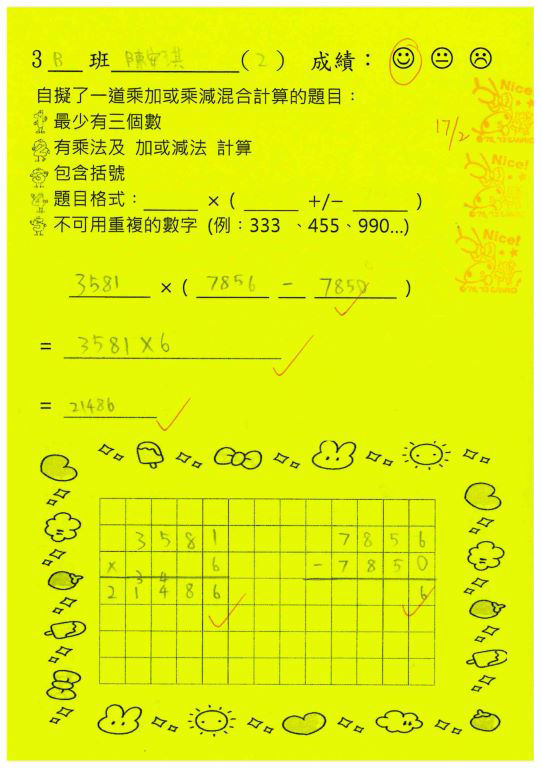 3 B 班 陳 琪 ( 2 ) 成績：
自擬了一道乘加或乘減混合計算的題目：
最少有三個數
有乘法及 加或減法 計算
包含括號
題目格式：______ × ( ______ +/− ______ )
不可用重複的數字 (例：333 、455、990...)
17/2
Nice!
Nice!
Nice!
3581 × ( 7856 − 7850 )
= 3581×6
= 21486
3581
× 6
3 4
21486
7856
−7850
6